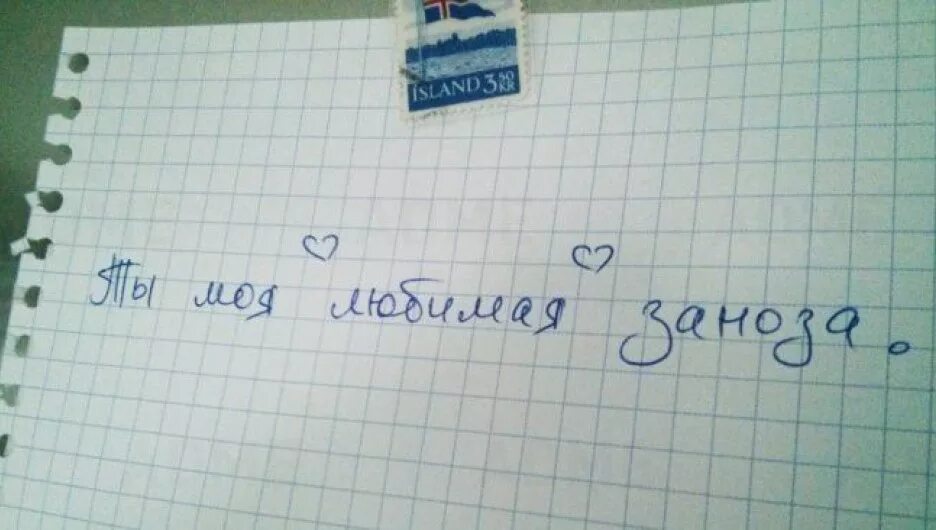 ÍSLAND 3 50 KR
Ты моя любимая заноза.